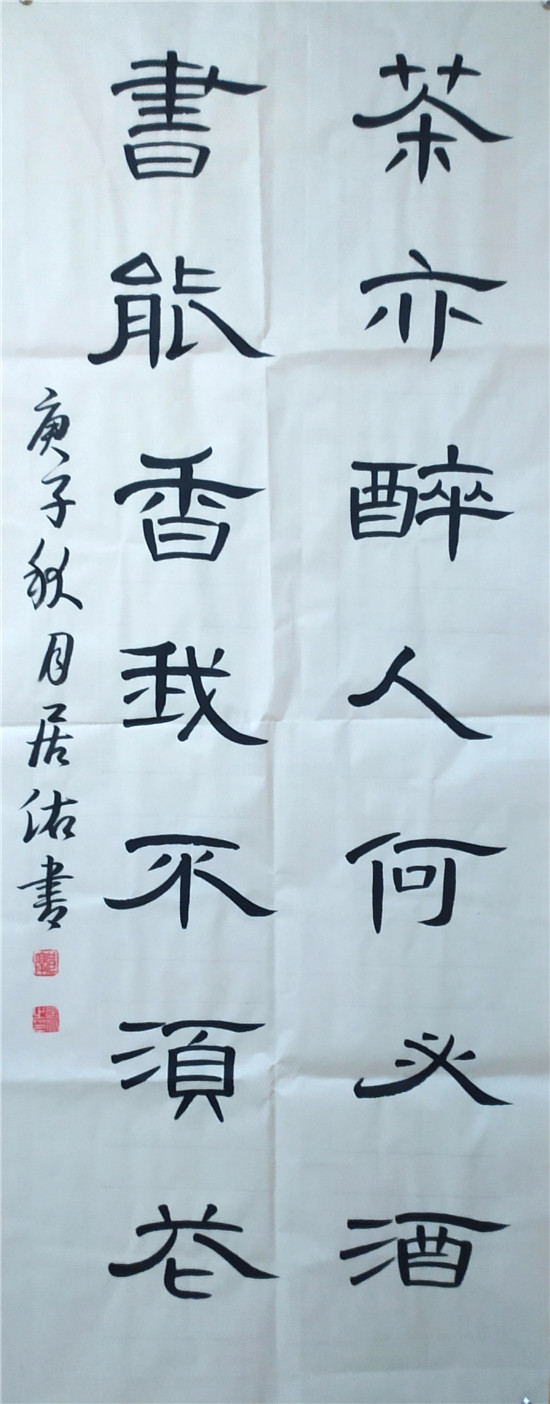 茶亦醉人何必酒
書能香我不須花
庚子秋月居佑書